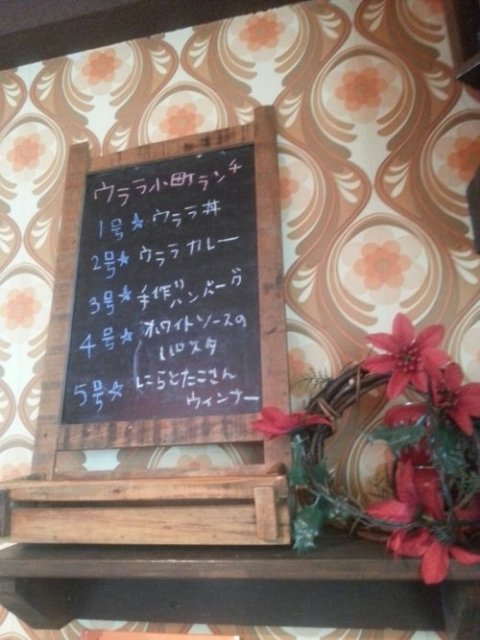 ウララ小町ランチ
1号☆ウララ丼
2号☆ウララカレー
3号☆手作りハンバーグ
4号☆ホワイトソースの
パスタ
5号☆にらとたこさん
ウィンナー